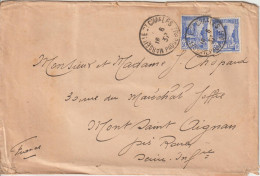 Monsieur et Madame J. Chopard
30 rue du Maréchal Joffre
Mont Saint Aignan
près Rouen
Seine-Infre
France